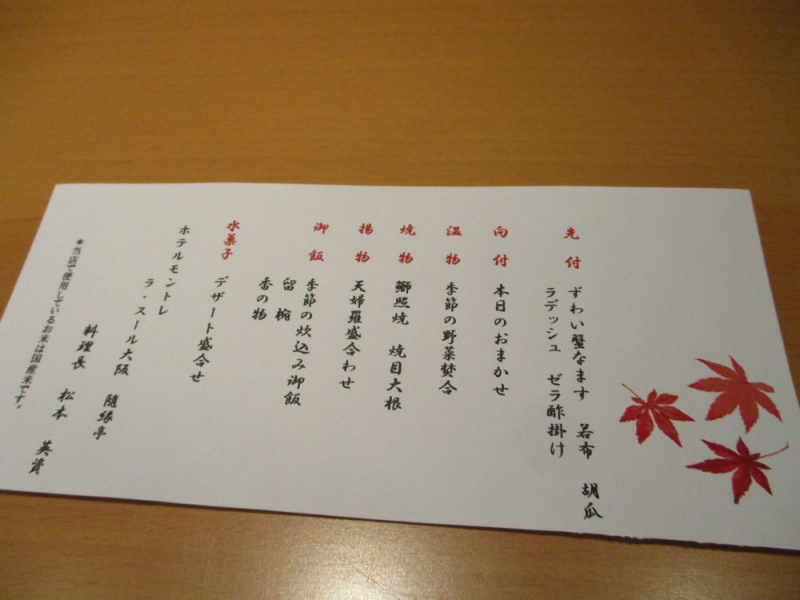 先付 ずわい蟹なます 若布 胡瓜
ラデッシュ ゼラ酢掛け
向付 本日のおまかせ
温物 季節の野菜焚合
焼物 鰤照焼 焼目大根
揚物 天婦羅盛合わせ
御飯 季節の炊込み御飯
留椀
香の物
水菓子 デザート盛合せ
ホテルモントレ
ラ・スール大阪 隨縁亭
料理長 松本 英資
*当店で使用しているお米は国産米です。